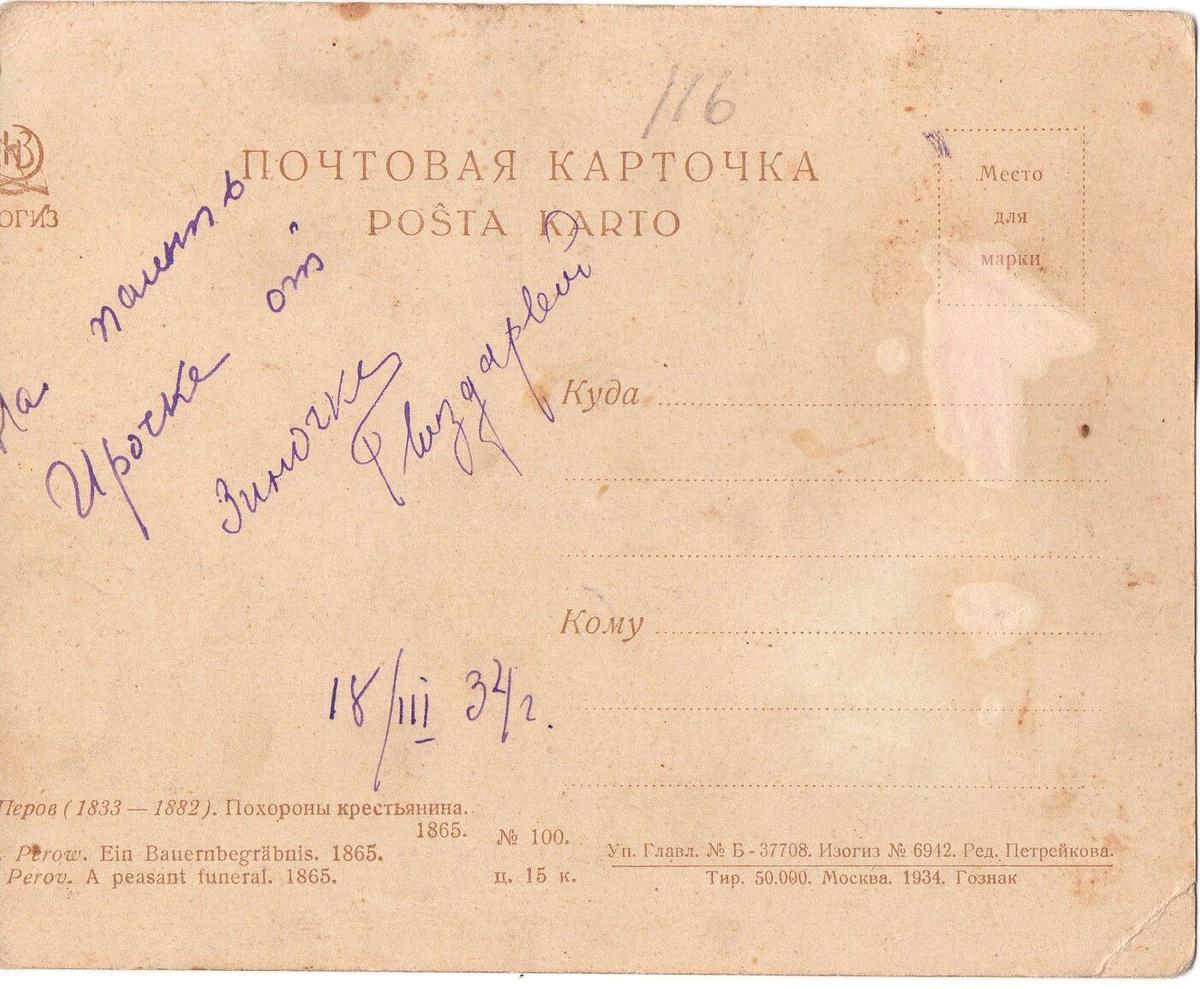 116
ПОЧТОВАЯ КАРТОЧКА
POŜTA KARTO
ОГИЗ
Место
для
марки
На память
Ирочке от
Зиночки
Гвоздаревой
Куда
Кому
18/III 34 г.
Перов (1833 — 1882). Похороны крестьянина.
1865.
Perow. Ein Bauernbegräbnis. 1865.
Perov. A peasant funeral. 1865.
№ 100.
ц. 15 к.
Уп. Главл. № Б - 37708. Изогиз № 6942. Ред. Петрейкова.
Тир. 50.000. Москва. 1934. Гознак